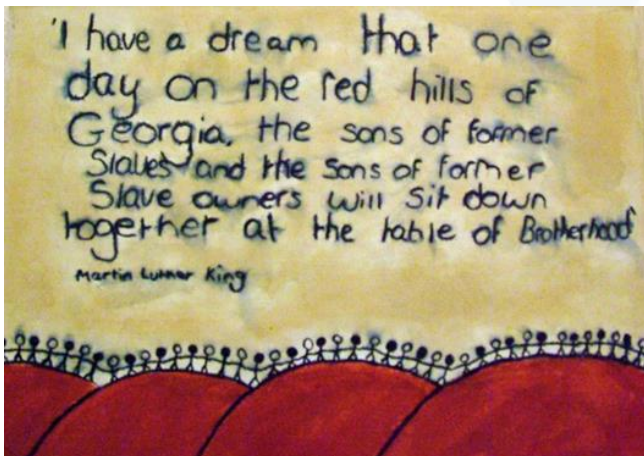 'I have a dream that one
day on the red hills of
Georgia, the sons of former
Slaves and the sons of former
Slave owners will sit down
together at the table of Brotherhood'
Martin Luther King